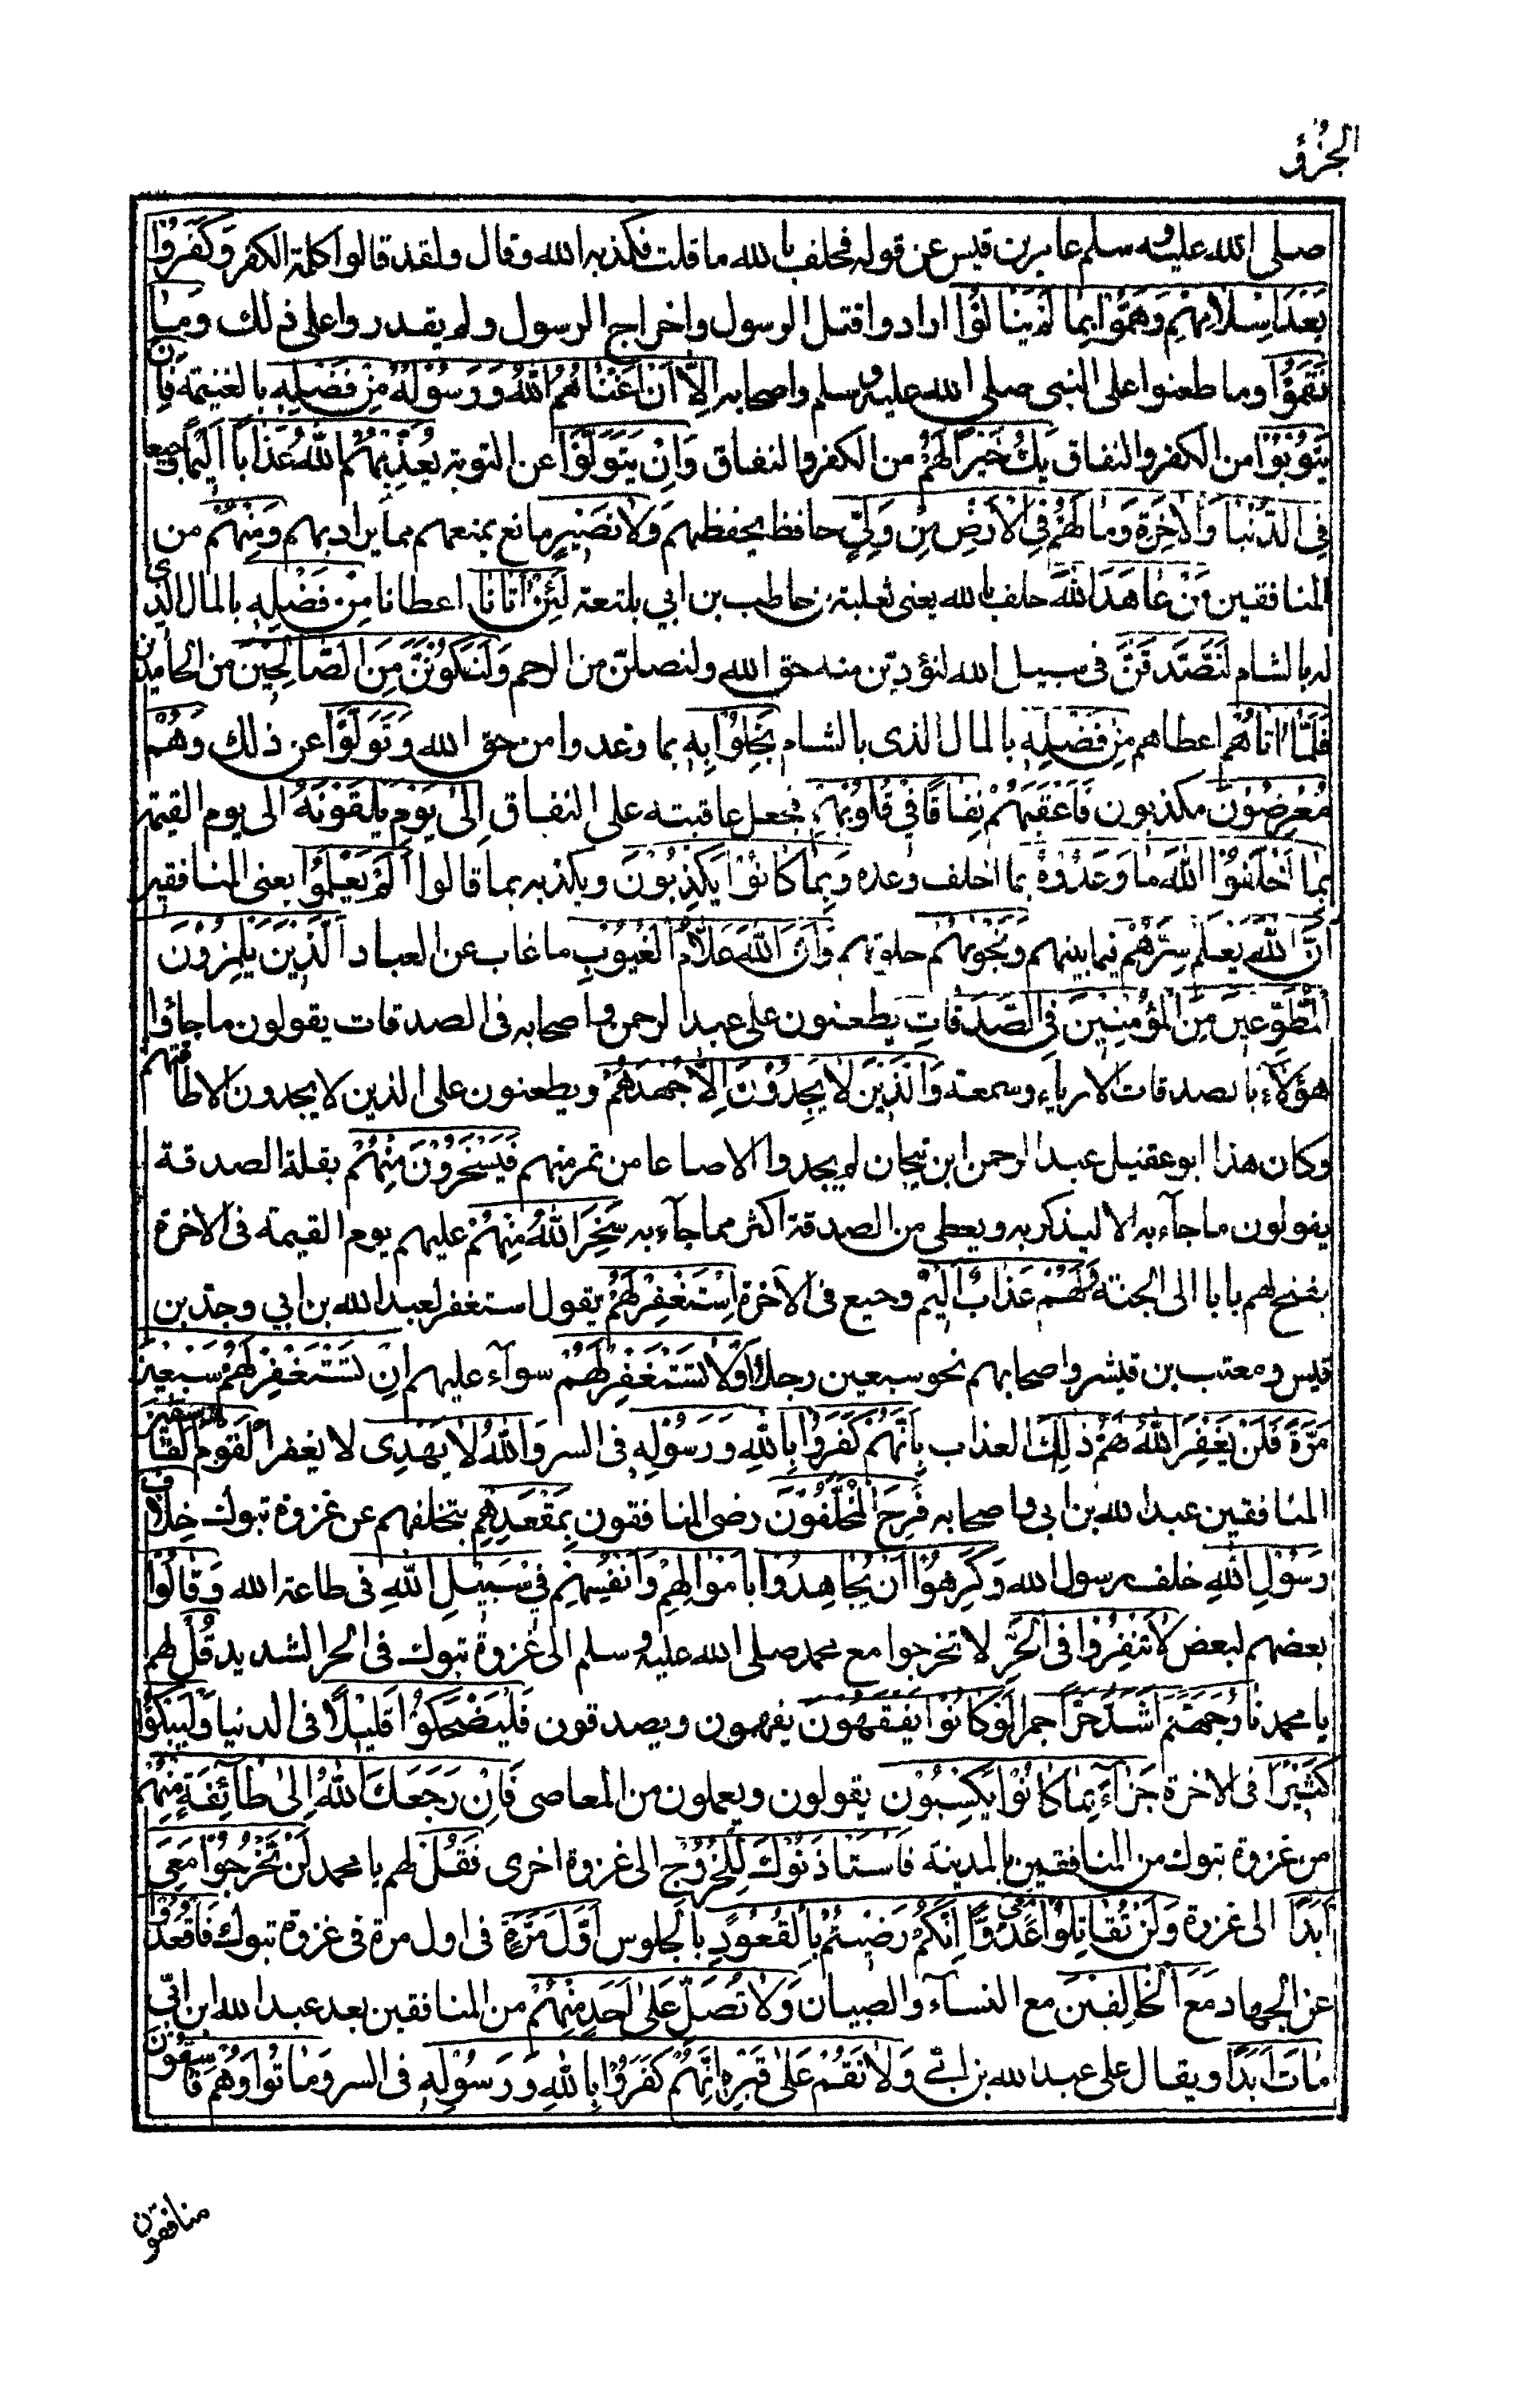 الجزؤ
صلى الله عليه وسلم عامر بن قيس عن قوله فحلف بالله ما قلت فكذبه الله وقال ولقد قالوا كلمة الكفر وَكَفَرُوْا
بَعْدَ اِسْلَامِهِمْ وَهَمُّوْا بِمَا لَمْ يَنَالُوْا ارادوا قتل الرسول واخراج الرسول ولم يقدروا على ذلك وَمَا
نَقَمُوْا وما طعنوا على النبى صلى الله عليه وسلم واصحابه اِلَّا اَنْ اَغْنَاهُمُ اللّٰهُ وَرَسُوْلُهٗ مِنْ فَضْلِهٖ بالغنيمة فَاِنْ
يَتُوْبُوْا من الكفر والنفاق يَكُ خَيْرًا لَّهُمْ من الكفر والنفاق وَاِنْ يَتَوَلَّوْا عن التوبة يُعَذِّبْهُمُ اللّٰهُ عَذَابًا اَلِيْمًا وجيعا
فِى الدُّنْيَا وَالْاٰخِرَةِ وَمَا لَهُمْ فِى الْاَرْضِ مِنْ وَلِيٍّ حافظ يحفظهم وَلَا نَصِيْرٍ مانع يمنعهم مما يراد بهم وَمِنْهُمْ من
المنافقين مَنْ عَاهَدَ اللّٰهَ حلف بالله يعنى ثعلبة بن حاطب بن ابي بلتعة لَئِنْ اٰتَانَا اعطانا مِنْ فَضْلِهٖ بالمال الذى
له بالشام لَنَصَّدَّقَنَّ فى سبيل الله لنؤدين منه حق الله ولنصلن من الرحم وَلَنَكُوْنَنَّ مِنَ الصَّالِحِيْنَ من الحامدين
فَلَمَّا اٰتَاهُمْ اعطاهم مِنْ فَضْلِهٖ بالمال الذى بالشام بَخِلُوْا بِهٖ بما وعدوا من حق الله وَتَوَلَّوْا عن ذلك وَهُمْ
مُعْرِضُوْنَ مكذبون فَاَعْقَبَهُمْ نِفَاقًا فِيْ قُلُوْبِهِمْ فجعل عاقبته على النفاق اِلٰى يَوْمِ يَلْقَوْنَهٗ الى يوم القيمة
بِمَا اَخْلَفُوا اللّٰهَ مَا وَعَدُوْهُ بما اخلف وعده وَبِمَا كَانُوْا يَكْذِبُوْنَ ويكذبه بما قالوا اَلَمْ يَعْلَمُوْا يعنى المنافقين
اَنَّ اللّٰهَ يَعْلَمُ سِرَّهُمْ فيما بينهم وَنَجْوٰىهُمْ خلوتهم وَاَنَّ اللّٰهَ عَلَّامُ الْغُيُوْبِ ما غاب عن العباد اَلَّذِيْنَ يَلْمِزُوْنَ
الْمُطَّوِّعِيْنَ مِنَ الْمُؤْمِنِيْنَ فِى الصَّدَقَاتِ يطعنون على عبد الرحمن واصحابه فى الصدقات يقولون ما جاؤا
هؤلاء بالصدقات الا رياء وسمعة وَالَّذِيْنَ لَا يَجِدُوْنَ اِلَّا جُهْدَهُمْ ويطعنون على الذين لا يجدون الا طاقتهم
وكان هذا ابو عقيل عبد الرحمن ابن تيجان لم يجدوا الا صاعا من تمر منهم فَيَسْخَرُوْنَ مِنْهُمْ بقلة الصدقة
يقولون ما جآء به الا ليذكر به ويعطى من الصدقة اكثر مما جآء به سَخِرَ اللّٰهُ مِنْهُمْ عليهم يوم القيمة فى الاخرة
يفتح لهم بابا الى الجنة وَلَهُمْ عَذَابٌ اَلِيْمٌ وجيع فى الآخرة اِسْتَغْفِرْ لَهُمْ يقول استغفر لعبد الله بن ابي وجد بن
قيس ومعتب بن قشير واصحابهم نحو سبعين رجلا اَوْ لَا تَسْتَغْفِرْ لَهُمْ سوآء عليهم اِنْ تَسْتَغْفِرْ لَهُمْ سَبْعِيْنَ
مَرَّةً فَلَنْ يَغْفِرَ اللّٰهُ لَهُمْ ذٰلِكَ العذاب بِاَنَّهُمْ كَفَرُوْا بِاللّٰهِ وَرَسُوْلِهٖ فى السر وَاللّٰهُ لَا يَهْدِى لا يغفر الْقَوْمَ الْفَاسِقِيْنَ
المنافقين عبد الله بن ابى واصحابه فَرِحَ الْمُخَلَّفُوْنَ رضى المنافقون بِمَقْعَدِهِمْ بتخلفهم عن غزوة تبوك خِلَافَ
رَسُوْلِ اللّٰهِ خلف رسول الله وَكَرِهُوْا اَنْ يُجَاهِدُوْا بِاَمْوَالِهِمْ وَاَنْفُسِهِمْ فِيْ سَبِيْلِ اللّٰهِ فى طاعة الله وَقَالُوْا
بعضهم لبعض لَا تَنْفِرُوْا فِى الْحَرِّ لا تخرجوا مع محمد صلى الله عليه وسلم الى غزوة تبوك فى الحر الشديد قُلْ لهم
يا محمد نَارُ جَهَنَّمَ اَشَدُّ حَرًّا جمرا لَوْ كَانُوْا يَفْقَهُوْنَ يفهمون ويصدقون فَلْيَضْحَكُوْا قَلِيْلًا فى الدنيا وَلْيَبْكُوْا
كَثِيْرًا فى الاخرة جَزَآءً بِمَا كَانُوْا يَكْسِبُوْنَ يقولون ويعملون من المعاصى فَاِنْ رَجَعَكَ اللّٰهُ اِلٰى طَآئِفَةٍ مِنْهُمْ
من غزوة تبوك من المنافقين بالمدينة فَاسْتَاْذَنُوْكَ لِلْخُرُوْجِ الى غزوة اخرى فَقُلْ لهم يا محمد لَنْ تَخْرُجُوْا مَعِيَ
اَبَدًا الى غزوة وَلَنْ تُقَاتِلُوْا مَعِيَ عَدُوًّا اِنَّكُمْ رَضِيْتُمْ بِالْقُعُوْدِ بالجلوس اَوَّلَ مَرَّةٍ فى اول مرة فى غزوة تبوك فَاقْعُدُوْا
عن الجهاد مَعَ الْخَالِفِيْنَ مع النسآء والصبيان وَلَا تُصَلِّ عَلٰى اَحَدٍ مِنْهُمْ من المنافقين بعد عبد الله ابن ابي
مَاتَ اَبَدًا ويقال على عبد الله بن ابي وَلَا تَقُمْ عَلٰى قَبْرِهٖ اِنَّهُمْ كَفَرُوْا بِاللّٰهِ وَرَسُوْلِهٖ فى السر وَمَاتُوْا وَهُمْ فَاسِقُوْنَ
منافقون